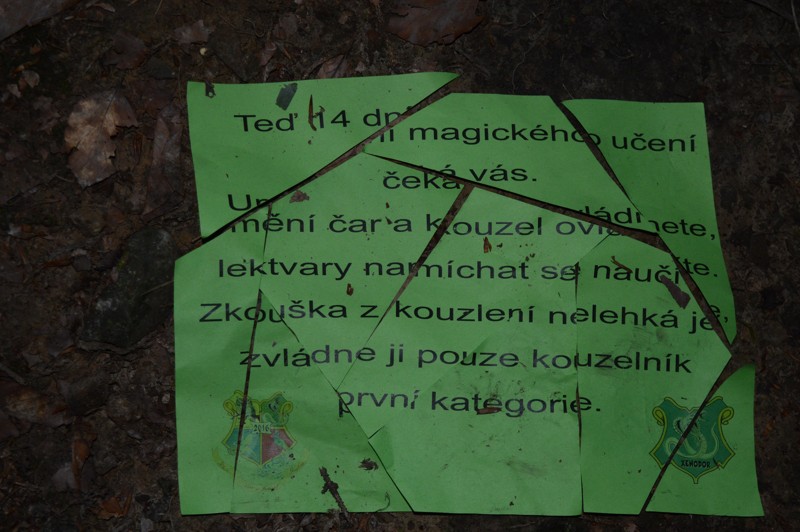 Teď 14 dní magického učení
čeká vás.
Umění čar a kouzel ovládnete,
lektvary namíchat se naučíte.
Zkouška z kouzlení nelehká je,
zvládne ji pouze kouzelník
první kategorie.
2016
XEMODOR